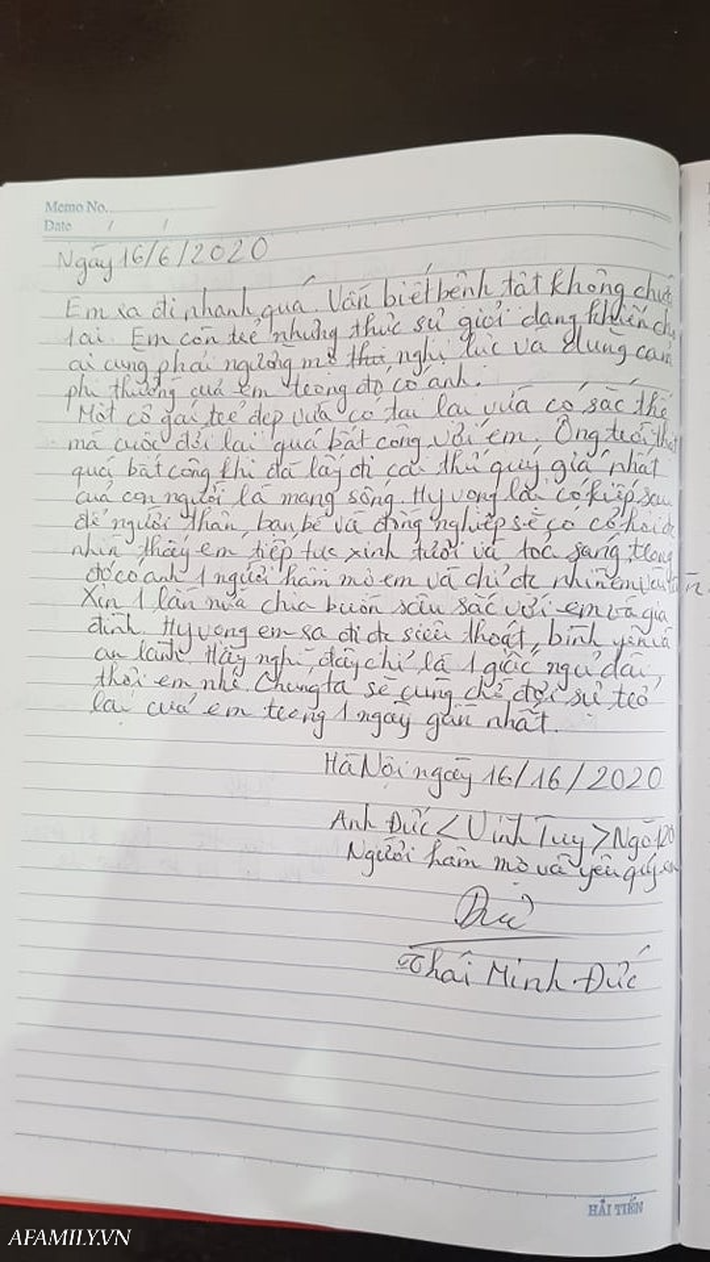 Memo No.
Date / /
Ngày 16/6/2020
Em ra đi nhanh quá. Vẫn biết bệnh tật không chừa
1 ai. Em còn trẻ nhưng thực sự giỏi dang khiến cho
ai cũng phải ngưỡng mộ nghị lực và dũng cảm
phi thường của em trong đó có anh.
Một cô gái trẻ đẹp vừa có tài lại vừa có sắc thế
mà cuộc đời lại quá bất công với em. Ông trời thật
quá bất công khi đã lấy đi cái thứ quý giá nhất
của con người là mạng sống. Hy vọng lần có kiếp sau
để người thân, bạn bè và đồng nghiệp sẽ có cơ hội đc
nhìn thấy em tiếp tục xinh tươi và toả sáng trong
đó có anh 1 người hâm mộ em và chỉ đc nhìn em
Xin 1 lần nữa chia buồn sâu sắc với em và gia
đình. Hy vọng em ra đi đc siêu thoát, bình yên và
an lành. Hãy nghĩ đây chỉ là 1 giấc ngủ dài,
thôi em nhé. Chúng ta sẽ cùng chờ đợi sự trở
lại của em trong 1 ngày gần nhất.
Hà Nội ngày 16/16/2020
Anh Đức <Vĩnh Tuy> Ngõ 120
Người hâm mộ và yêu quý em
Đức
Thái Minh Đức
HẢI TIẾN
AFAMILY.VN